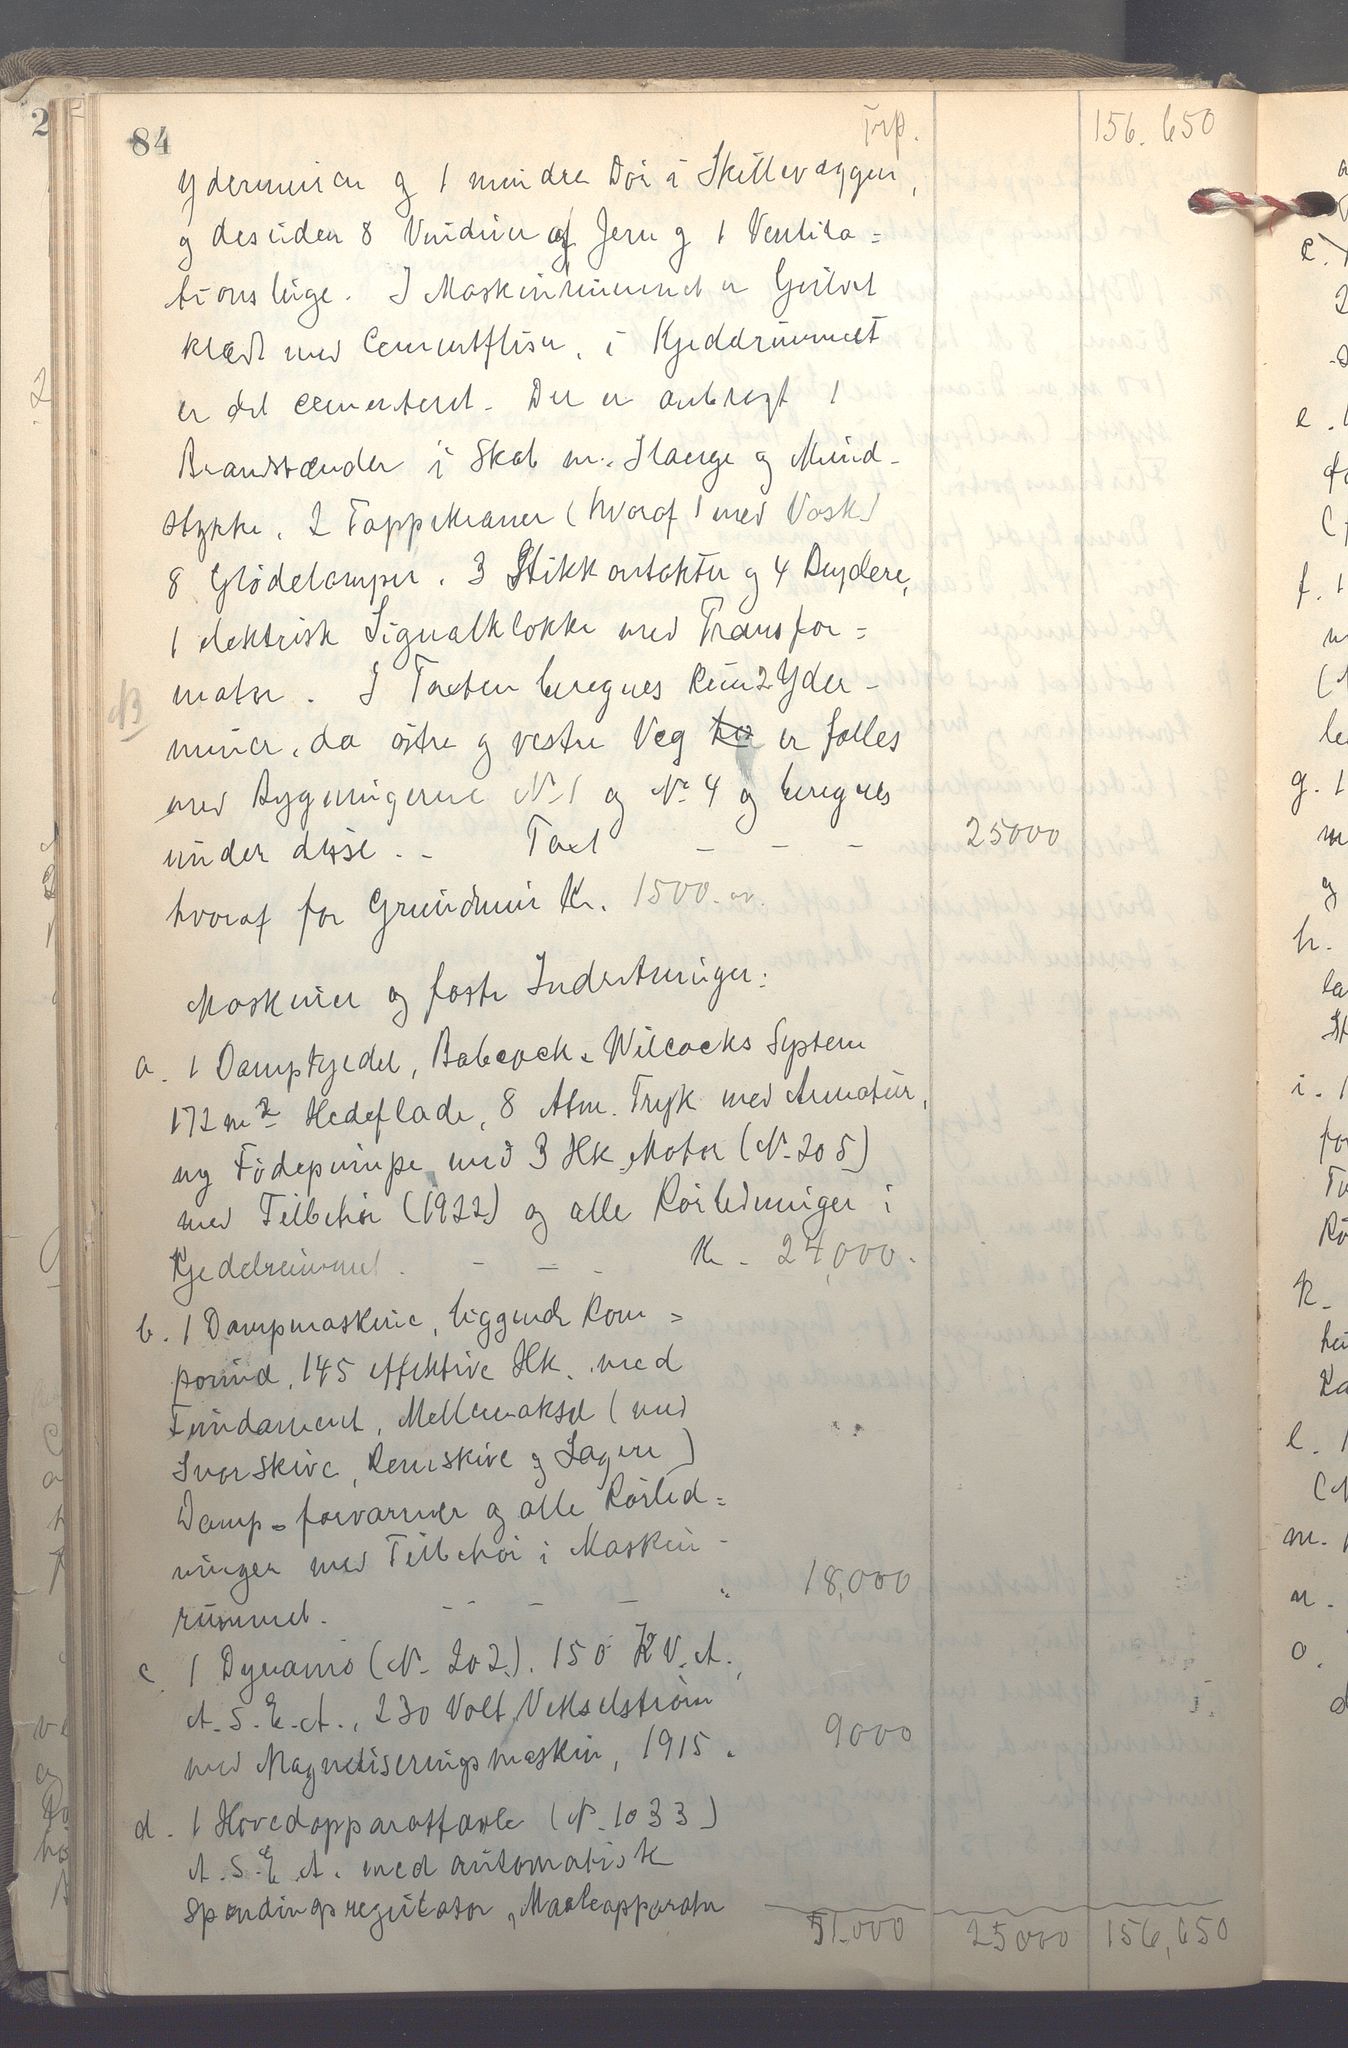 84
Trp. 156.650
Ydermuren og 1 mindre Dör i Skillevæggen,
og desuden 8 Vinduer af Jern og 1 Ventila=
tionsluge. I Maskinrummet er Gulvet
klædt med Cementfliser, i Kjedelrummet
er det cementeret. Der er anbragt 1
Brandstænder i Skab m. Slange og Mund-
stykke, 2 Tappekraner (hvoraf 1 med Vask)
8 Glödelamper, 3 Stikkontakter og 4 Brydere,
1 elektrisk Signalklokke med Transfor=
mator. I Taxten beregnes kun 2 Yder-
murer, da östre og vestre Veg er fælles
med Bygningerne No 1 og No 4 og beregnes
under disse. - Taxt - - - 25000
hvoraf for Grundmur Kr. 1500.-
Maskiner og faste Indretninger:
a. 1 Dampkjedel, Babcock & Wilcocks System
172 m2 Hedeflade, 8 Atm. Tryk med Armatur,
ny Födepumpe med 3 Hk. Motor (No 205)
med Tilbehör (1922) og alle Rörledninger i
Kjedelrummet. - - - Kr. 24,000.
b. 1 Dampmaskine, liggende Kom=
pound, 145 effektive Hk. med
Fundament, Mellemaksel (med
Svorskive, Remskive og Lagere)
Damp-forvarmer og alle Rörled=
ninger med Tilbehör i Maskin-
rummet. - - - - " 18,000
c. 1 Dynamo (No 202). 150 KV.A.,
A.S.E.A., 230 Volt Vekselström
med Magnetiseringsmaskin, 1915. 9000
d. 1 Hovedapparattavle (No 1033)
A.S.E.A. med automatisk
Spændingsregulator, Maaleapparater
51.000 25000 156,650